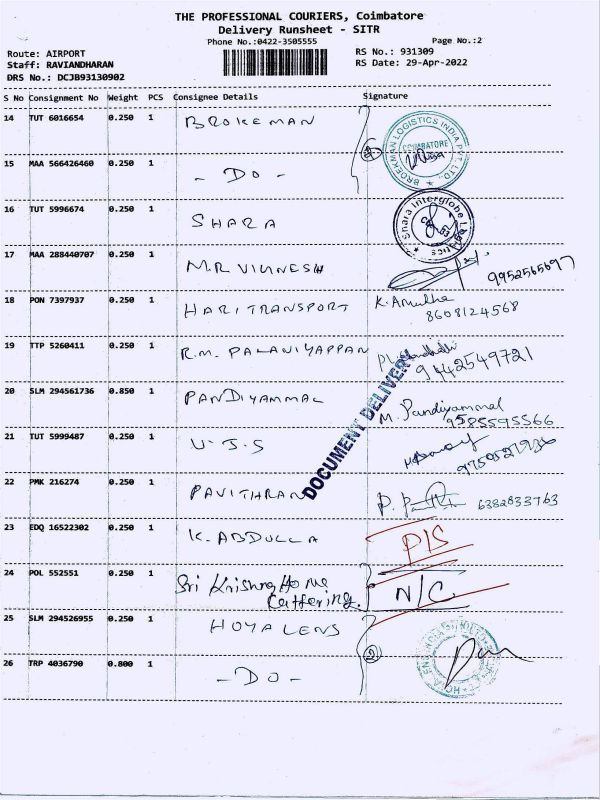 THE PROFESSIONAL COURIERS, Coimbatore
Delivery Runsheet - SITR
Phone No.:0422-3505555
Page No.:2
Route: AIRPORT
RS No.: 931309
Staff: RAVIANDHARAN
RS Date: 29-Apr-2022
DRS No.: DCJB93130902
S No Consignment No Weight PCS Consignee Details Signature
14 TUT 6016654 0.250 1 BROKEMAN
BROEKMAN LOGISTICS INDIA PVT. LTD.
COIMBATORE
15 MAA 566426460 0.250 1 - DO -
16 TUT 5996674 0.250 1 SHARA
Shara Interglobe Logistics
17 MAA 288440707 0.250 1 MR VIGNESH
18 PON 7397937 0.250 1 HARI TRANSPORT K. Amutha
8608124568
19 TTP 5260411 0.250 1 R.M. PALANIYAPPAN
9442549721
20 SLM 294561736 0.850 1 PANDIYAMMAL M. Pandiyammal
9585595566
DOCUMENT DELIVERY
21 TUT 5999487 0.250 1
22 PMK 216274 0.250 1 PAVITHRAN 6382833763
23 EDQ 16522302 0.250 1 K. ABDULLA P/S
24 POL 552551 0.250 1 Sri Krishna Home
Cattering. N/C
25 SLM 294526955 0.250 1 HOYA LENS
26 TRP 4036790 0.800 1 - DO -
2